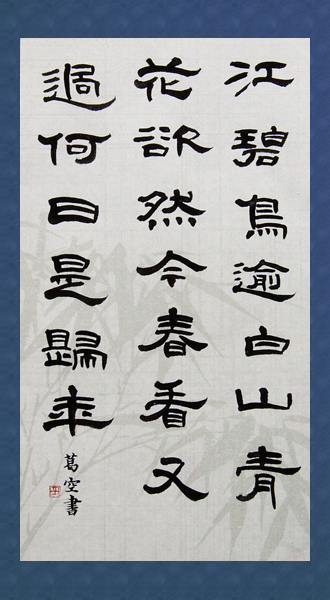 江碧鳥逾白山青
花欲然今春看又
過何日是歸年
葛空書